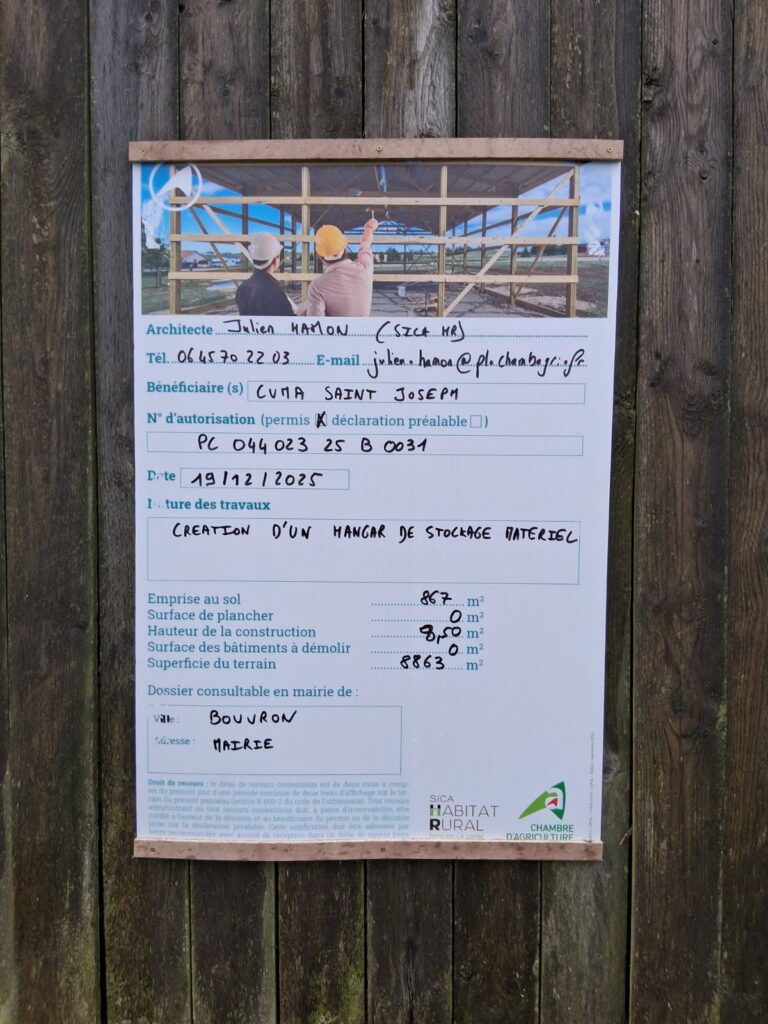 Architecte Julien HAMON (SICA HR)
Tél. 06 45 70 22 03 E-mail julien.hamon@pl.chambagri.fr
Bénéficiaire (s) CUMA SAINT JOSEPH
N° d'autorisation (permis X déclaration préalable )
PC 044 023 25 B 0031
Date 19/12/2025
ture des travaux
CREATION D'UN HANGAR DE STOCKAGE MATERIEL
Emprise au sol 867 m²
Surface de plancher 0 m²
Hauteur de la construction 8,50 m²
Surface des bâtiments à démolir 0 m²
Superficie du terrain 8863 m²
Dossier consultable en mairie de :
Ville : BOUVRON
Adresse : MAIRIE
Droit de recours : le délai de recours contentieux est de deux mois à comp-
ter du premier jour d'une période continue de deux mois d'affichage sur le ter-
rain du présent panneau (article R.600-2 du code de l'urbanisme). Tout recours
administratif ou tout recours contentieux doit, à peine d'irrecevabilité, être
notifié à l'auteur de la décision et au bénéficiaire du permis ou de la décision
prise sur la déclaration préalable. Cette notification doit être adressée par
lettre recommandée avec accusé de réception dans un délai de quinze jours
SICA
HABITAT
RURAL
PAYS DE LA LOIRE
CHAMBRE
D'AGRICULTURE